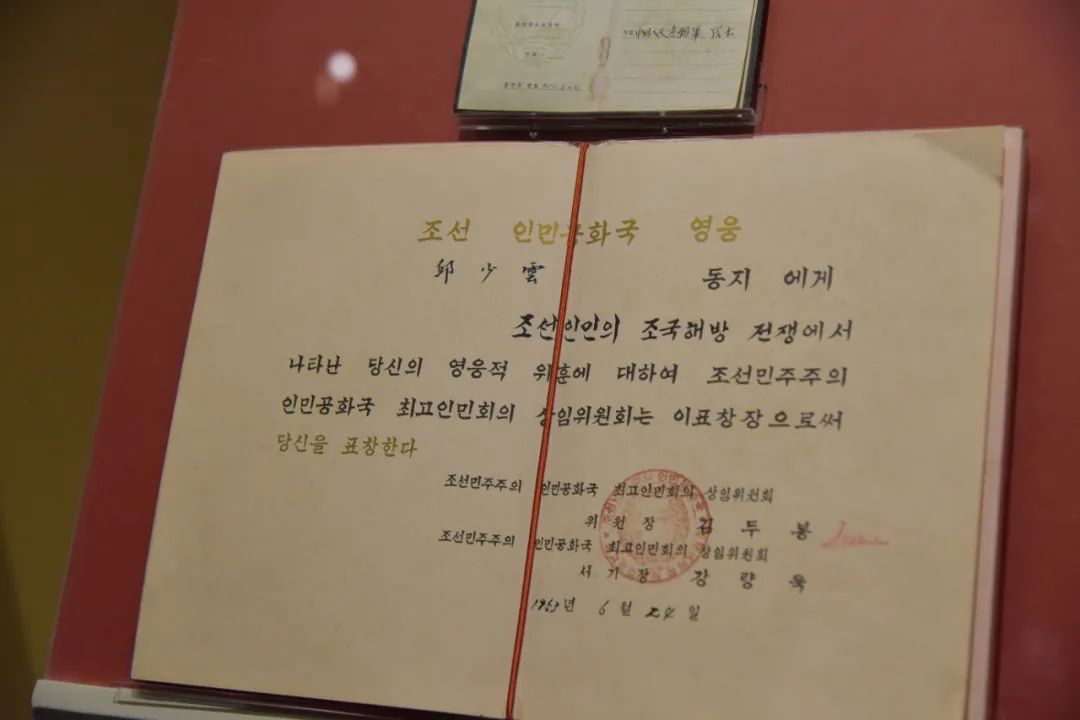 조선 인민공화국 영웅
邱少雲 동지 에게
조선인민의 조국해방 전쟁에서
나타난 당신의 영웅적 위훈에 대하여 조선민주주의
인민공화국 최고인민회의 상임위원회는 이표창장으로써
당신을 표창한다
조선민주주의 인민공화국 최고인민회의 상임위원회
위원장 김두봉
조선민주주의 인민공화국 최고인민회의 상임위원회
서기장 강량욱
1953년 6월 24일